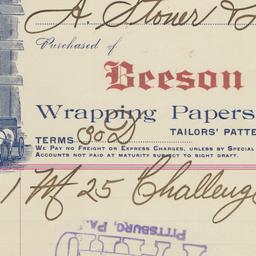 A. Stoner &
Purchased of
Beeson
Wrapping Papers
TAILORS' PATTE
TERMS 30 D
WE PAY NO FREIGHT OR EXPRESS CHARGES, UNLESS BY SPECIAL
ACCOUNTS NOT PAID AT MATURITY SUBJECT TO SIGHT DRAFT.
1 M 25 Challenge
PITTSBURG, PA.
PAID